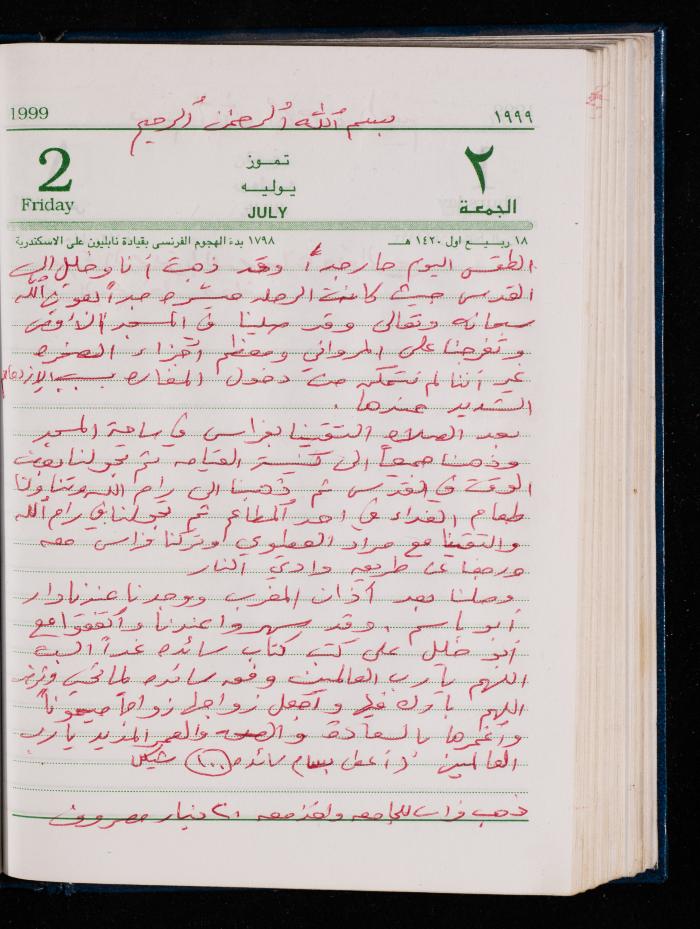 1999
بسم الله الرحمن الرحيم
١٩٩٩
2
Friday
تمــوز
يوليه
JULY
٢
الجمعة
١٧٩٨ بدء الهجوم الفرنسي بقيادة نابليون على الاسكندرية
١٨ ربيـع اول ١٤٢٠ هـ
الطقس اليوم حار جداً وقد ذهبت أنا وخليل الى
القدس حيث كانت الرحلة ميسره جداً بعون الله
سبحانه وتعالى وقد صلينا في المسجد الأقصى
وتفرجنا على المرواني ومعظم أجزاء الصخره
غير أننا لم نتمكن من دخول المغاره بسبب الإزدحام
الشديد عندها .
بعد الصلاه التقينا بفراس في ساحة المسجد
وذهبنا جميعاً الى كنيسة القيامه ثم تجولنا بعض
الوقت في القدس ثم ذهبنا الى رام الله وتناولنا
طعام الغداء في احد المطاعم ثم تجولنا في رام الله
والتقينا مع مراد وتركنا فراس معه
ورجعنا عن طريق وادي النار
وصلنا بعد أذان المغرب ووجدنا عندنا دار
أبو باسم . وقد سهروا عندنا واتفقوا مع
أبو خليل على كتب كتاب سائده غداً السبت
اللهم يا رب العالمين وفق سائده لما تحب وترضى
اللهم بارك فيها واجعل زواجها زواجاً ميموناً
واغمرها بالسعادة والصحه والعمر المديد يا رب
العالمين (أعطى بسام سائده ١٠٠ شيكل
ذهب فراس للجامعه وأخذ معه ٢٠ دينار مصروف